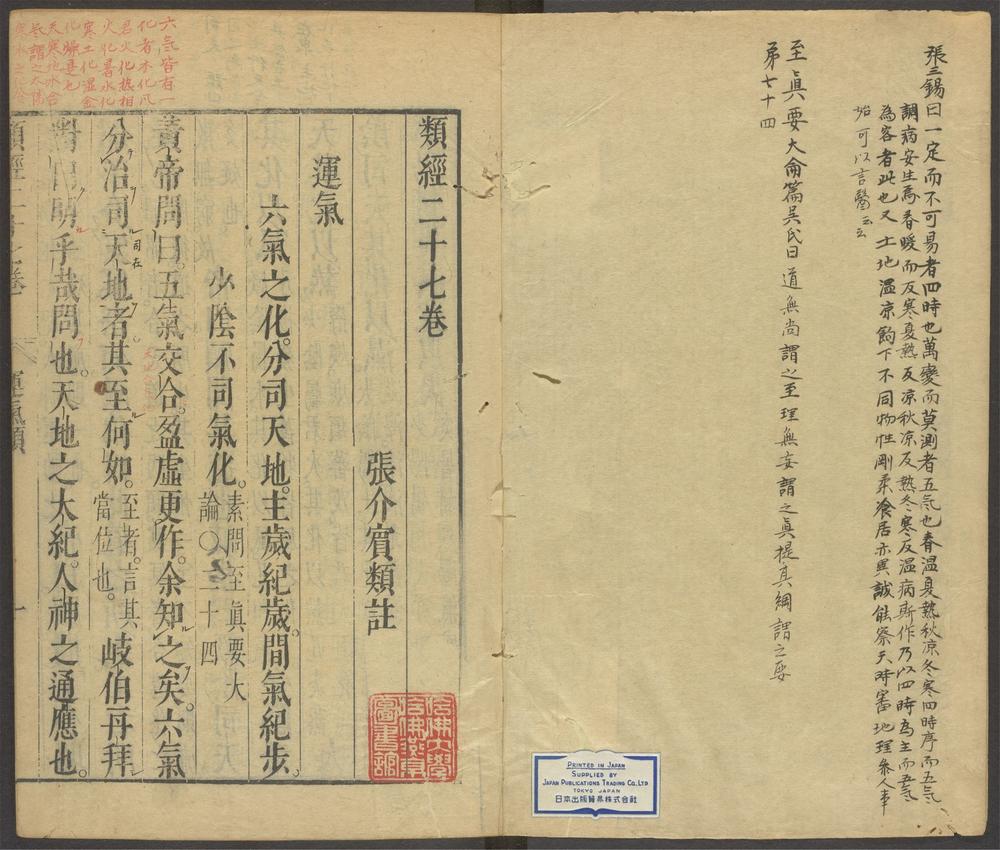 張三錫曰一定而不可易者四時也萬變而莫測者五氣也春溫夏熱秋凉冬寒四時序而五氣
調病安生焉春暖而反寒夏熱反凉秋凉反熱冬寒反溫病斯作乃以四時為主而五氣
為客者此也又土地溫凉高下不同物性剛柔飡居亦異誠能察天時審地理參人事
始可以言醫云云
至眞要大侖篇吴氏曰道無尚謂之至理無妄謂之眞提其綱謂之要
第七十四
PRINTED IN JAPAN
SUPPLIED BY
JAPAN PUBLICATIONS TRADING CO., LTD
TOKYO JAPAN
日本出版貿易株式会社
類經二十七卷
張介賓類註
運氣
六氣之化。分司天地。主歲紀歲。間氣紀步。
少陰不司氣化。
素問至眞要大
論〇二十四
黃帝問曰。五氣交合。盈虛更作。余知之矣。六氣
分治司天地者。其至何如。
至者。言其
當位也。
岐伯再拜
對曰。明乎哉問也。天地之大紀。人神之通應也。
司在
哈佛大學
哈佛燕京
圖書館
六氣皆有一
化者木化風
君火化熱相
火化暑水化
寒土化溫金
化燥是也
運氣類
一